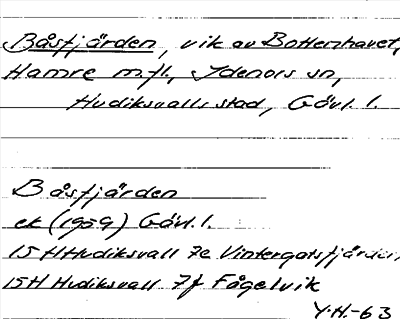 Båsfjärden, vik av Bottenhavet,
Hamre m.fl., Idenors sn,
Hudiksvalls stad, Gävl. l.
Båsfjärden
ek (1959) Gävl. l.
15 H Hudiksvall 7e Vintergatsfjärden
15H Hudiksvall 7f Fågelvik
Y.H.-63